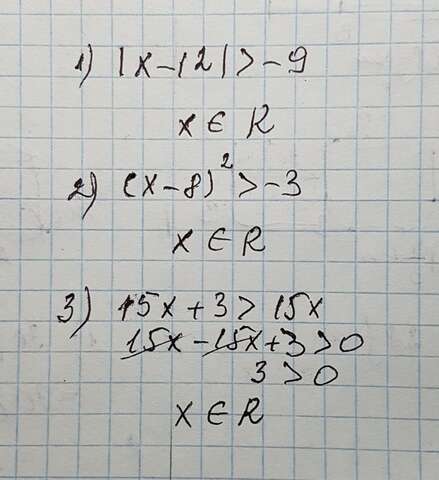 1) |x-12|>-9
x ∈ R
2) (x-8)²>-3
x ∈ R
3) 15x+3>15x
15x-15x+3>0
3>0
x ∈ R